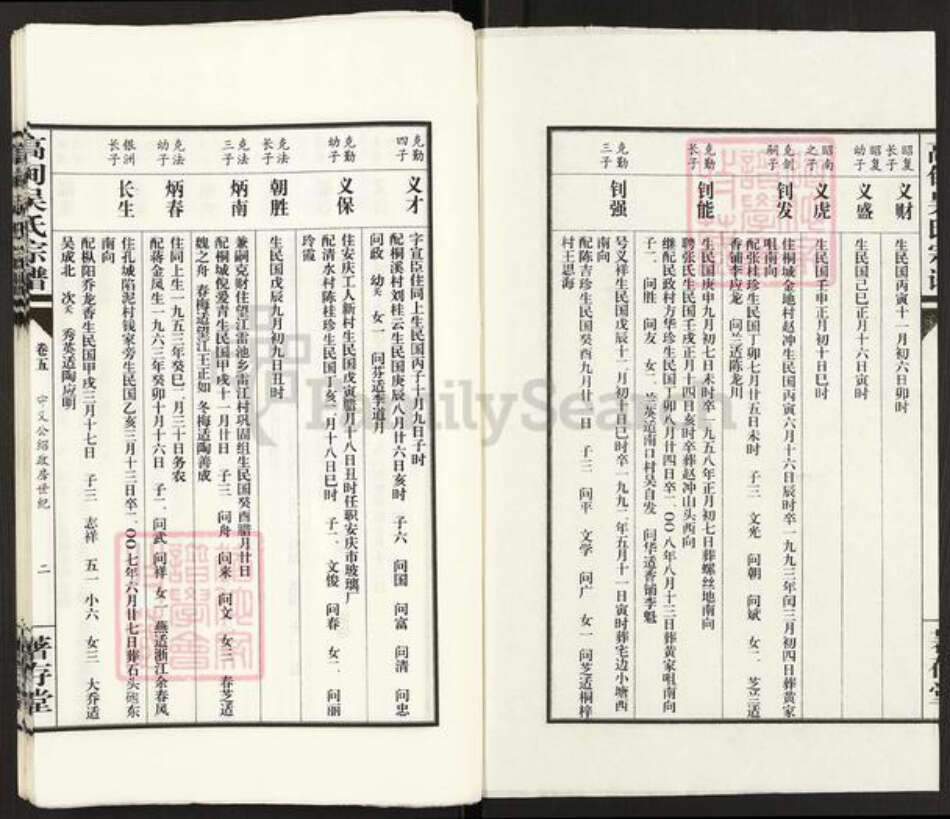 昭复
长子
义财
生民国丙寅十一月初六日卯时
昭复
幼子
义盛
生民国己巳正月十六日寅时
昭南
之子
义虎
生民国壬申正月初十日巳时
克剑
嗣子
钊发
住桐城金地村赵冲生民国丙寅六月十六日辰时卒一九九三年闰三月初四日葬黄家
咀南向
配张桂珍生民国丁卯七月廿五日未时 子三 文光 问朝 问斌 女二 芝兰适
香铺李应龙 问兰适陈龙川
克勤
长子
钊能
生民国庚申九月初七日未时卒一九五八年正月初七日葬螺丝地南向
聘张氏生民国壬戌正月十四日亥时卒葬赵冲山头西向
继配民政村方华珍生民国丁卯八月廿四日卒二〇〇八年八月十三日葬黄家咀南向
子二 问胜 问友 女二 兰英适南口村吴自发 问华适香铺李魁
克勤
三子
钊强
号义祥生民国戊辰十二月初十日巳时卒一九九二年五月十一日寅时葬宅边小塘西
南向
配陈吉珍生民国癸酉九月廿二日 子三 问平 文学 问广 女一 问芝适桐梓
村王思海
克勤
四子
义才
字宣臣住同上生民国丙子十月九日子时
配桐溪村刘桂云生民国庚辰八月廿六日亥时 子六 问国 问富 问清 问忠
问政 幼 女一 问芬适李道月
克勤
幼子
义保
住安庆工人新村生民国戊寅腊月十八日丑时任职安庆市玻璃厂
配清水村陈桂珍生民国丁亥二月十八日巳时 子二 文俊 问春 女二 问丽
玲霞
克法
长子
朝胜
生民国戊辰九月初九日丑时
克法
三子
炳南
兼嗣克财住望江雷池乡雷江村巩固组生民国癸酉腊月廿日
配桐城倪爱青生民国甲戌十一月廿日 子三 问舟 问来 问文 女三 春芝适
魏之舟 春梅适望江王正如 冬梅适陶善成
克法
幼子
炳春
住同上生一九五三年癸巳二月三十日务农
配蒋金凤生一九六三年癸卯十月十六日 子二 问武 问祥 女一 燕适浙江余春风
银洲
长子
长生
住孔城陷泥村钱家旁生民国乙亥三月十三日卒二〇〇七年六月廿七日葬石头硊东
南向
配枞阳乔龙香生民国甲戌三月十七日 子三 志祥 五一 小六 女三 大乔适
吴成北 次 秀英适陶应明
高甸吴氏宗谱
卷五
中义公绍政房世纪
二
著存堂
FamilySearch